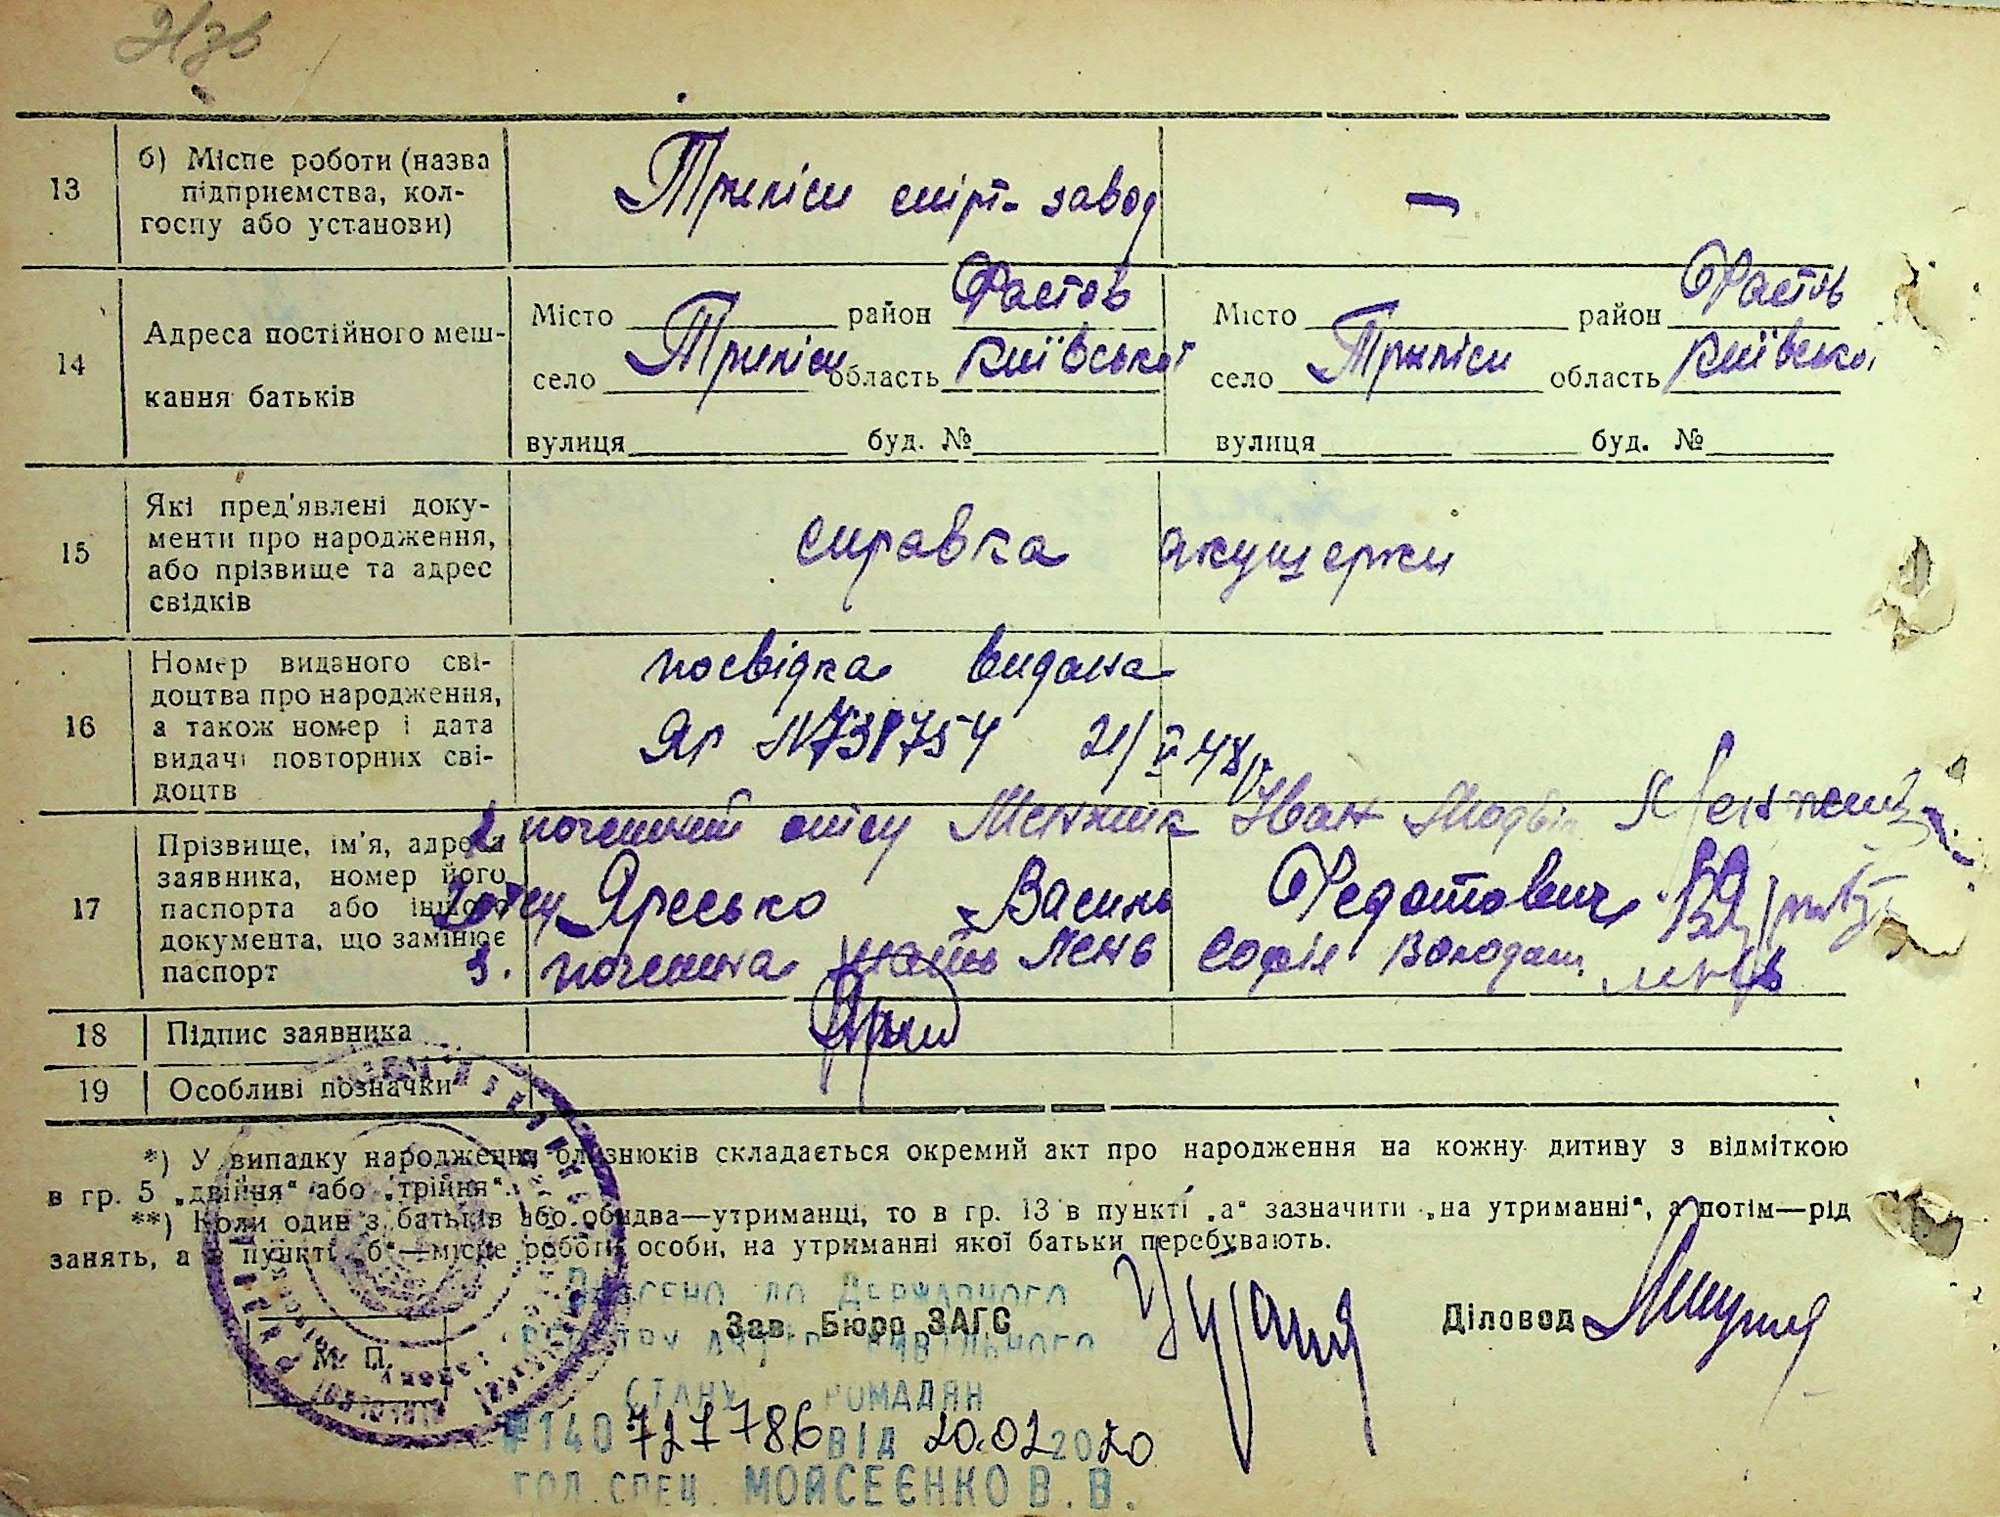 13
б) Місце роботи (назва
підприємства, кол-
госпу або установи)
Трипіси спірт-завод
—
14
Адреса постійного меш-
кання батьків
Місто район Фастов
село Трипіси область Київської
вулиця буд. №
Місто район Фастов
село Трипіси область Київської
вулиця буд. №
15
Які пред'явлені доку-
менти про народження,
або прізвище та адрес
свідків
справка акушерки
16
Номер виданого сві-
доцтва про народження,
а також номер і дата
видачі повторних сві-
доцтв
посвідка видана
ЯР N 731754 21/V 48
17
Прізвище, ім'я, адреса
заявника, номер його
паспорта або іншого
документа, що замінює
паспорт
Мельник Іван
2 отец Яресько Василь Федотович
3. Лень Софія Володим
18
Підпис заявника
19
Особливі позначки
*) У випадку народження близнюків складається окремий акт про народження на кожну дитину з відміткою
в гр. 5 „двійня“ або „трійня“.
**) Коли один з батьків або обидва—утриманці, то в гр. 13 в пункті „а“ зазначити „на утриманні“, а потім—рід
занять, а в пункті „б“—місце роботи особи, на утриманні якої батьки перебувають.
Внесено до Державного
Зав. Бюро ЗАГС
Діловод
реєстру актів цивільного
М. П.
стану громадян
№140 727786 від 20.02 2020
гол. спец. МОЙСЕЄНКО В. В.